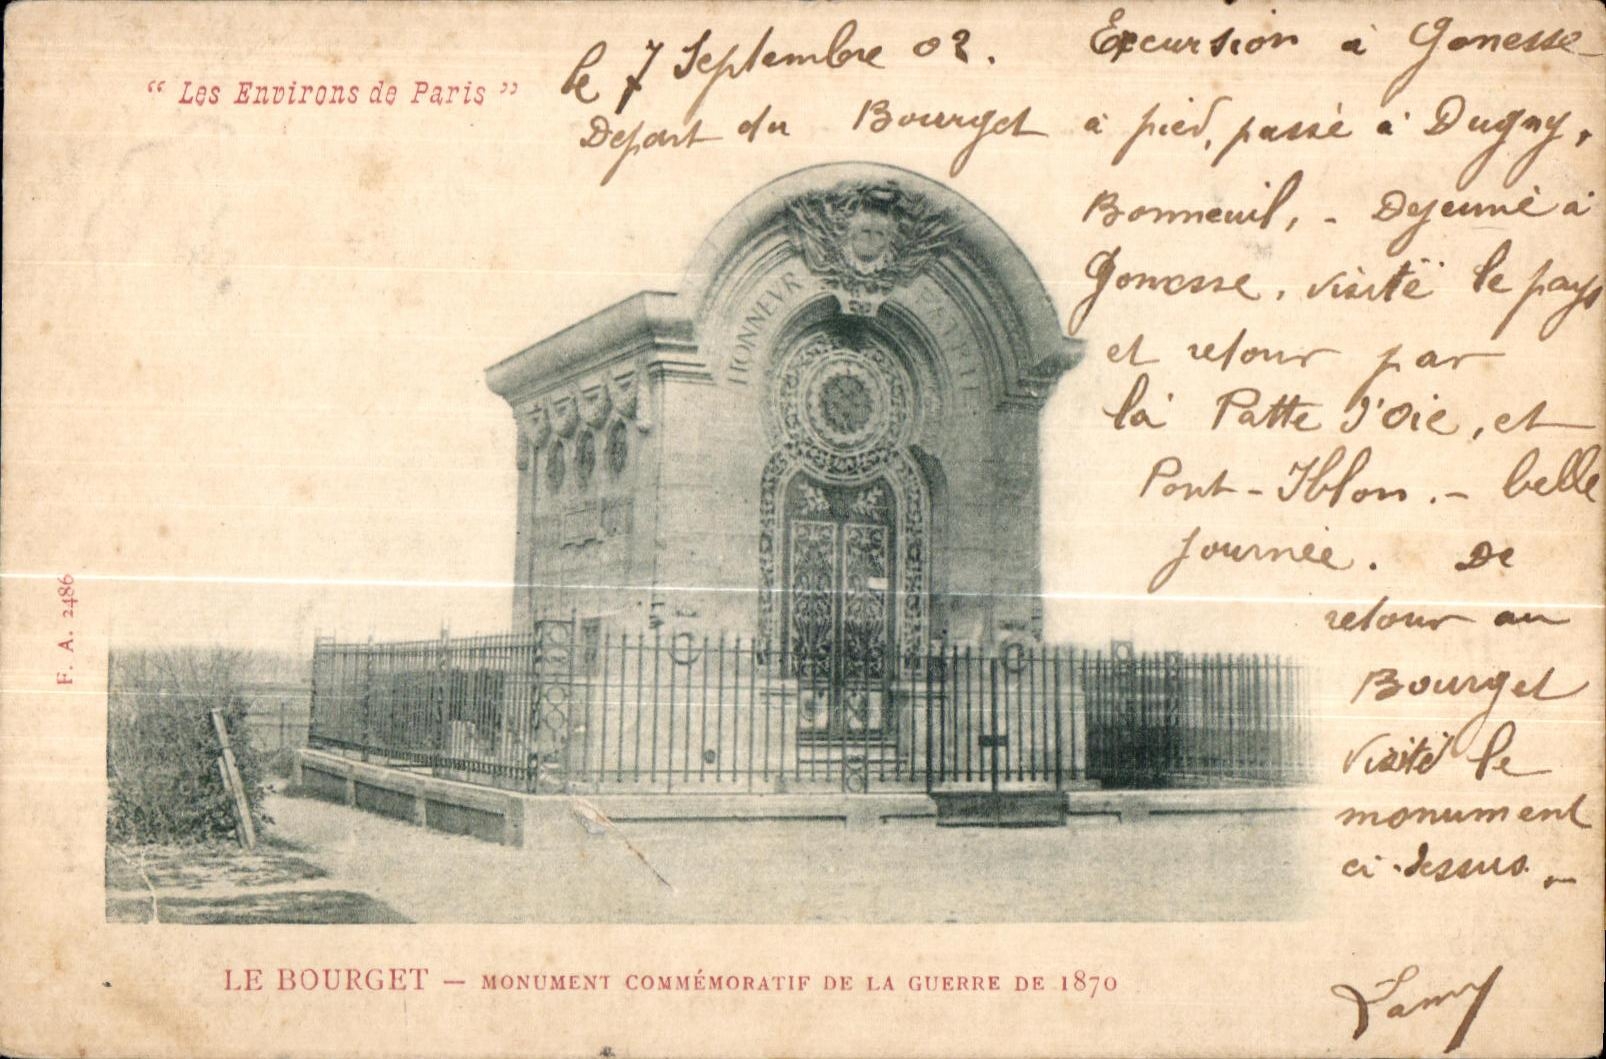 “ Les Environs de Paris ”
le 7 Septembre 02. Excursion à Gonesse
Depart du Bourget à pied, passé à Dugny,
Bonneuil, - Dejeuné à
Gonesse, visité le pays
et retour par
la Patte d'Oie, et
Pont-Iblon. - belle
journée. De
retour au
Bourget
visité le
monument
ci-dessus. -
HONNEVR PATRIE
F. A. 2486
LE BOURGET — MONUMENT COMMÉMORATIF DE LA GUERRE DE 1870